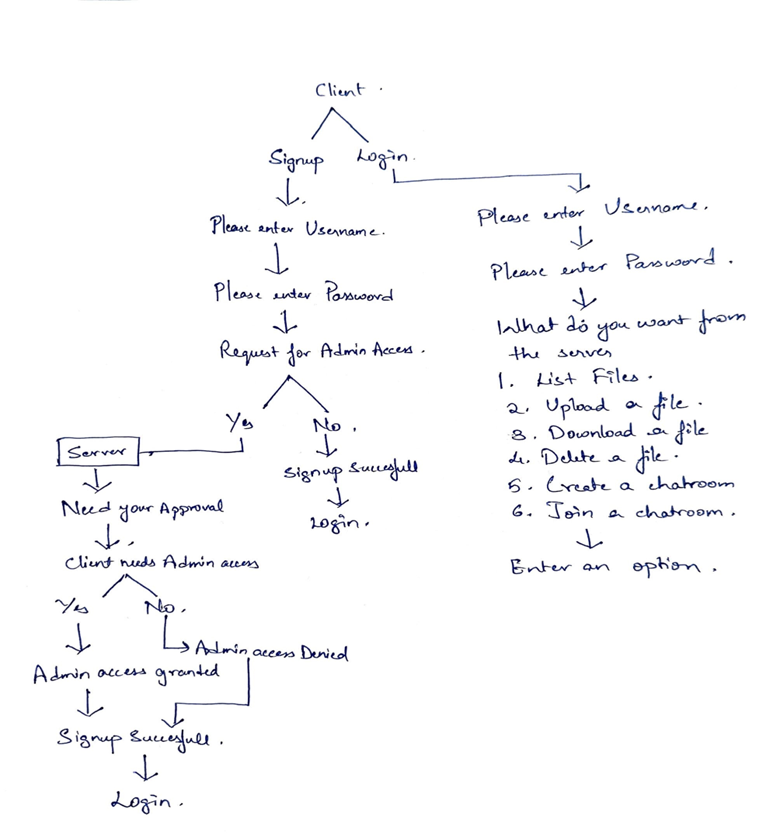 Client.
Signup
Login.
Please enter Username.
Please enter Password
Request for Admin Access.
Yes
No.
Server
Need your Approval
Client needs Admin access
Yes
No.
Admin access Denied
Admin access granted
Signup Succesfull.
Login.
Signup Succesfull
Login.
Please enter Username.
Please enter Password.
What do you want from
the server
1. List Files.
2. Upload a file.
3. Download a file
4. Delete a file.
5. Create a chatroom
6. Join a chatroom.
Enter an option.